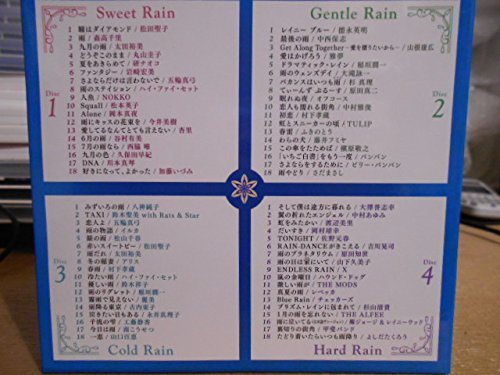 Sweet Rain
Disc 1
1 瞳はダイアモンド / 松田聖子
2 雨 / 森高千里
3 九月の雨 / 太田裕美
4 どうぞこのまま / 丸山圭子
5 夏をあきらめて / 研ナオコ
6 ファンタジー / 岩崎宏美
7 さよならだけは言わないで / 五輪真弓
8 雨のステイション / ハイ・ファイ・セット
9 人魚 / NOKKO
10 Squall / 松本英子
11 Alone / 岡本真夜
12 雨にキッスの花束を / 今井美樹
13 愛してるなんてとても言えない / 杏里
14 6月の雨 / 谷村有美
15 7月の雨なら / 西脇 唯
16 九月の色 / 久保田早紀
17 DNA / 川本真琴
18 好きになって、よかった / 加藤いづみ
Gentle Rain
Disc 2
1 レイニー ブルー / 徳永英明
2 最後の雨 / 中西保志
3 Get Along Together ―愛を贈りたいから― / 山根康広
4 愛はかげろう / 雅夢
5 ドラマティック・レイン / 稲垣潤一
6 雨のウェンズデイ / 大滝詠一
7 バカンスはいつも雨 / 杉 真理
8 てぃーんず ぶるーす / 原田真二
9 眠れぬ夜 / オフコース
10 恋人も濡れる街角 / 中村雅俊
11 初恋 / 村下孝蔵
12 虹とスニーカーの頃 / TULIP
13 春雷 / ふきのとう
14 わらの犬 / 藤井フミヤ
15 この傘をたためば / 槇原敬之
16 「いちご白書」をもう一度 / バンバン
17 さよならをするために / ビリー・バンバン
18 雨やどり / さだまさし
Disc 3
1 みずいろの雨 / 八神純子
2 TAXI / 鈴木聖美 with Rats & Star
3 恋人よ / 五輪真弓
4 雨の物語 / イルカ
5 銀の雨 / 松山千春
6 赤いスイートピー / 松田聖子
7 雨だれ / 太田裕美
8 冬の雨 / アリス
9 春雨 / 村下孝蔵
10 冷たい雨 / ハイ・ファイ・セット
11 優しい雨 / 鈴木祥子
12 雨のリグレット / 稲垣潤一
13 霧雨で見えない / 麗美
14 雨降る東京 / 古内東子
15 泣きたい日もある / 永井真理子
16 千流の雫 / 工藤静香
17 今日は雨 / 南こうせつ
18 一恵 / 山口百恵
Cold Rain
Disc 4
1 そして僕は途方に暮れる / 大澤誉志幸
2 翼の折れたエンジェル / 中村あゆみ
3 虹をみたかい / 渡辺美里
4 だいすき / 岡村靖幸
5 TONIGHT / 佐野元春
6 RAIN-DANCEがきこえる / 吉川晃司
7 雨のプラネタリウム / 原田知世
8 雨の日は家にいて / 山下久美子
9 ENDLESS RAIN / X
10 嵐の金曜日 / ハウンド・ドッグ
11 激しい雨が / THE MODS
12 真夏の雨 / レベッカ
13 Blue Rain / チェッカーズ
14 プラズム・レインに包まれて / 杉山清貴
15 1月の雨を忘れない / THE ALFEE
16 雨に泣いてる / 柳ジョージ & レイニーウッド
17 裏切りの街角 / 甲斐バンド
18 たどり着いたらいつも雨降り / よしだたくろう
Hard Rain